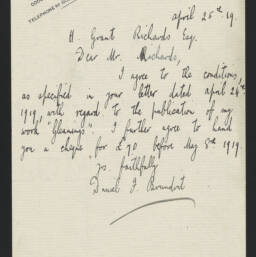 TELEPHONE
april 25th 19.
H. Grant Richards Esq.
Dear Mr. Richards,
I agree to the conditions,
as specified in your letter dated april 24th
1919, with regard to the publication of my
work "Gleanings". I further agree to hand
you a cheque for £70 before May 8th 1919.
yrs. faithfully
Daniel J.